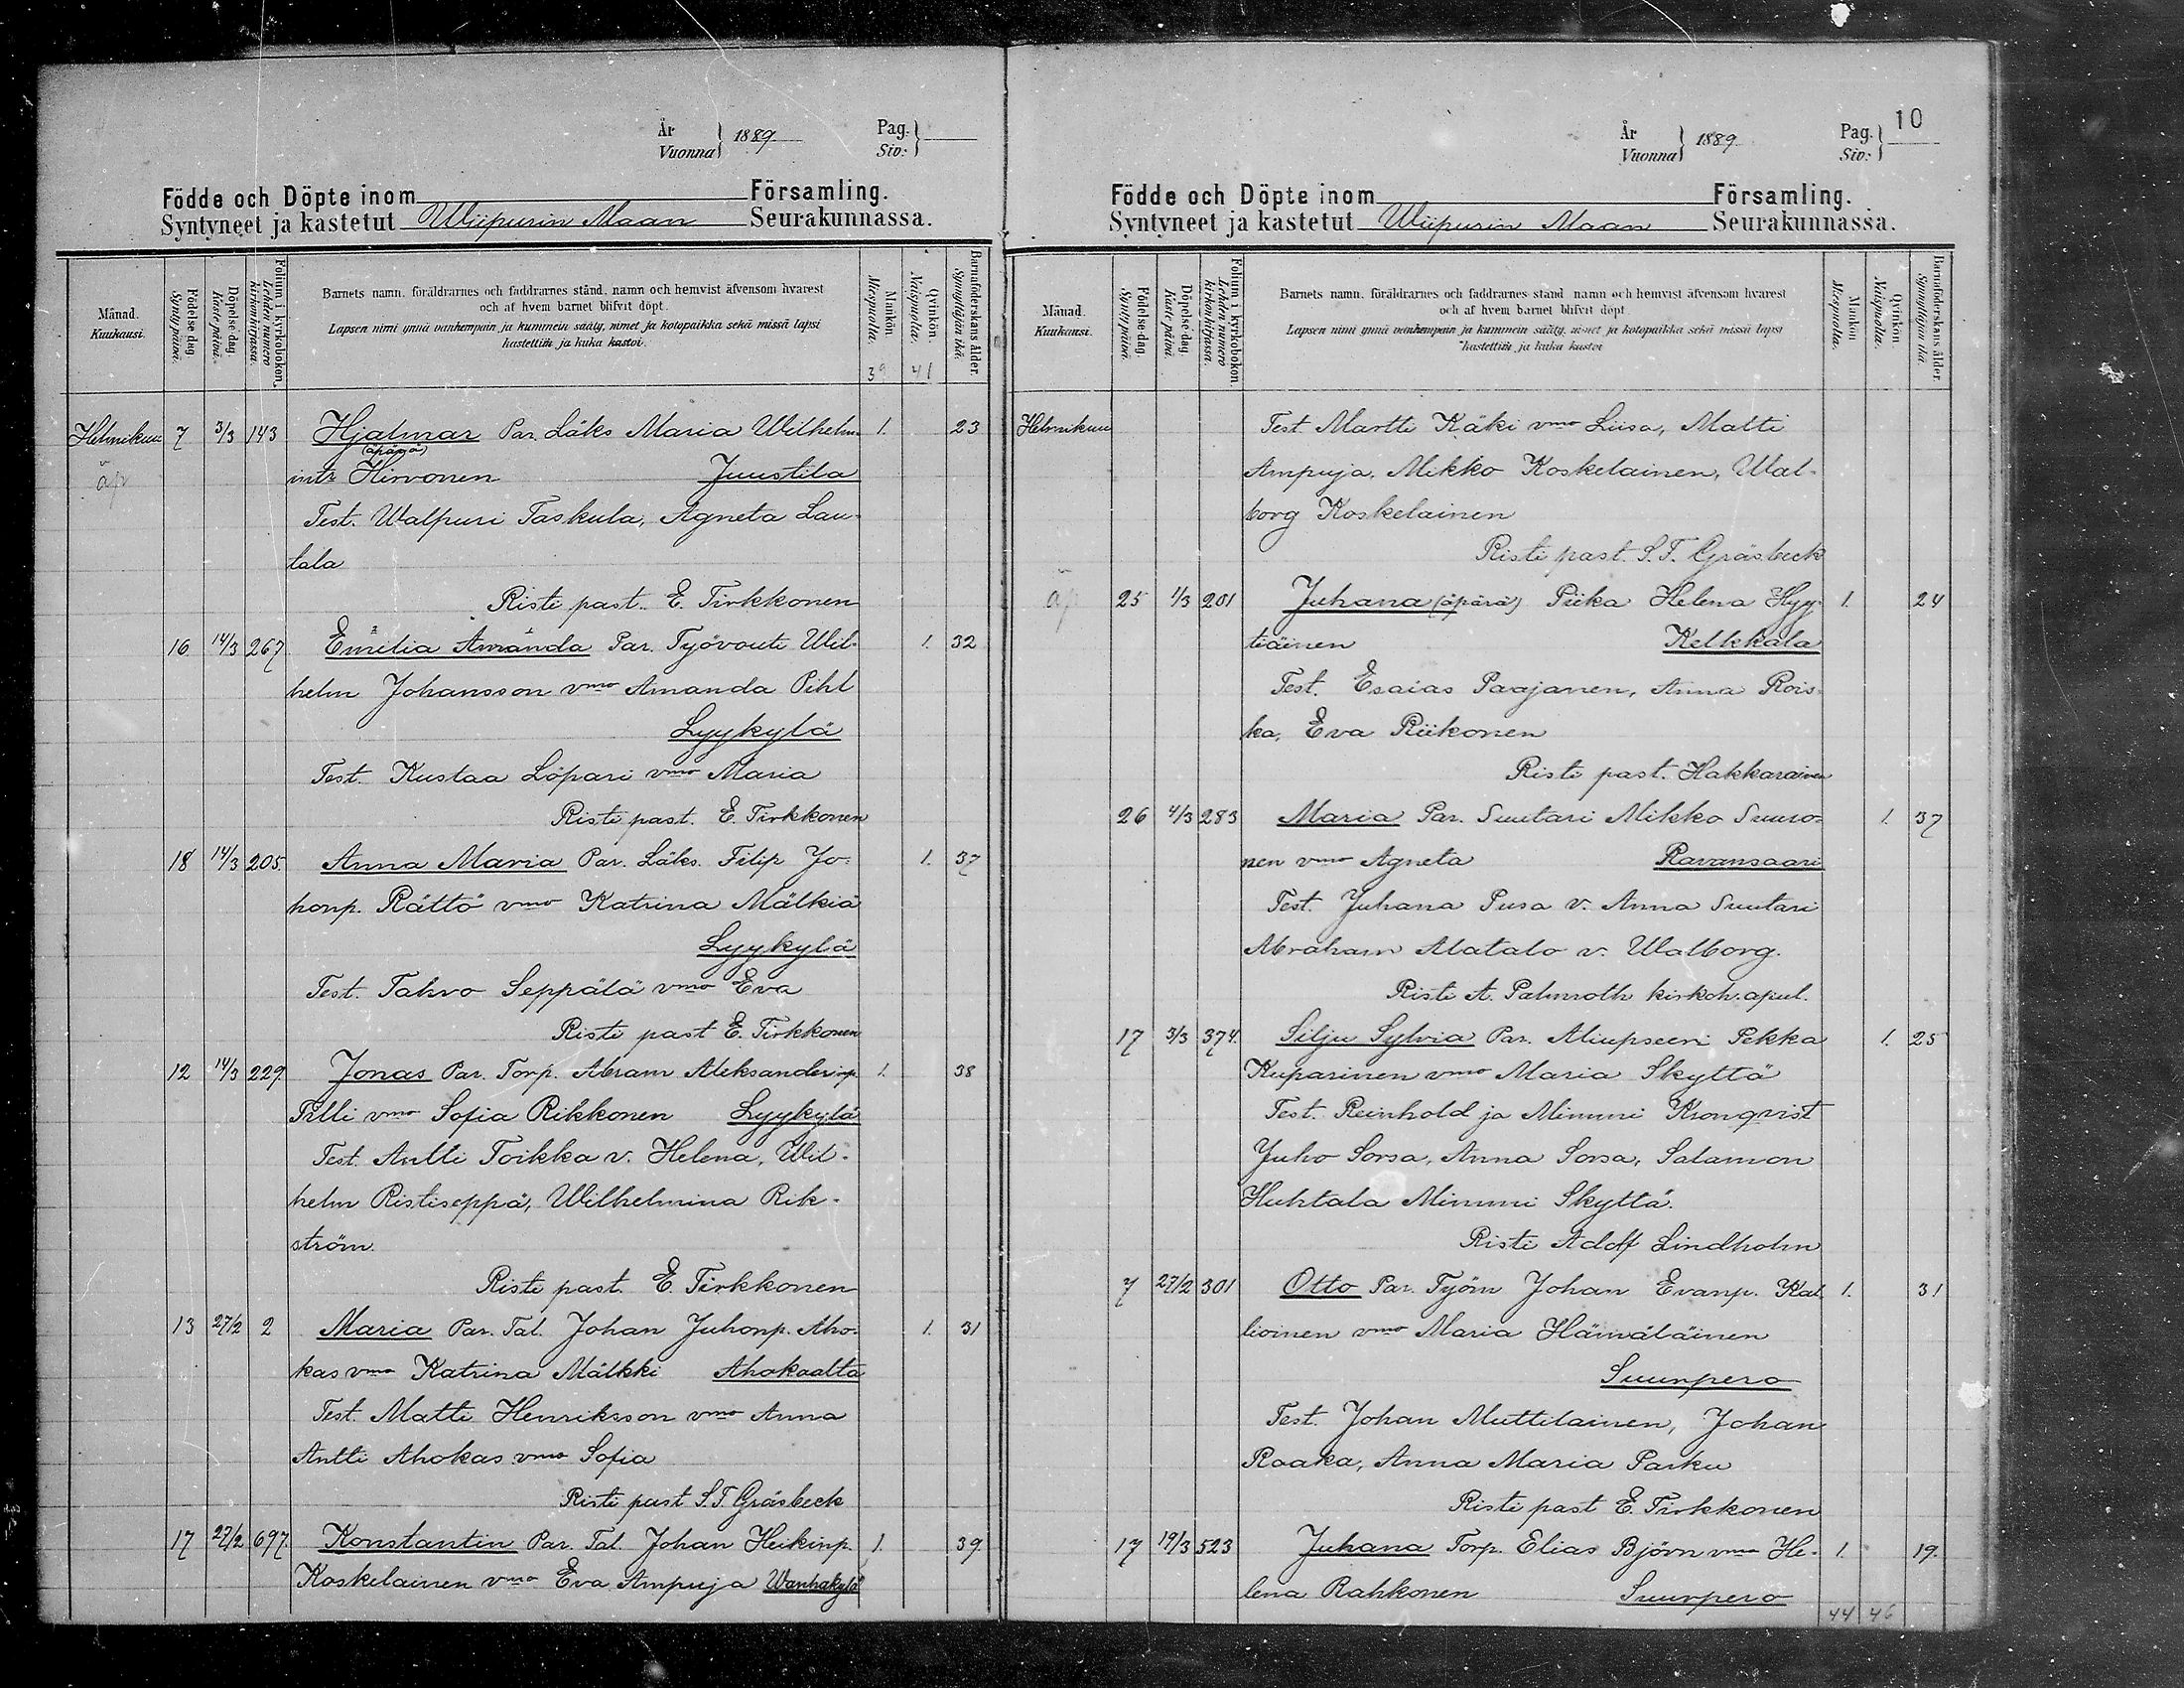 År
Vuonna } 1889
Pag.
Siv: }
Födde och Döpte inom Församling.
Syntyneet ja kastetut Wiipurin Maan Seurakunnassa.
Månad.
Kuukausi.
Födelse dag.
Syntypäivä.
Döpelse dag.
Kaste päivä.
Folium i kyrkoboken.
Lehden numero kirkon kirjassa.
Barnets namn, föräldrarnes och faddrarnes stånd, namn och hemvist äfvensom hvarest
och af hvem barnet blifvit döpt.
Lapsen nimi ynnä vanhempain ja kummein sääty, nimet ja kotopaikka sekä missä lapsi
kastettiin ja kuka kastoi.
Mankön.
Miespuolia.
Qvinkön.
Naispuolia.
Barnaföderskans ålder.
Synnyttäjän ikä.
39 41
Helmikuu 7 3/3 143 Hjalmar Par. Läks Maria Wilhelm- 1. 23
(äpärä)
äp intr Hirvonen Juustila
Test. Walpuri Taskula, Agneta Lau-
tala
Risti past. E. Tirkkonen
16 14/3 267 Emilia Amanda Par. Työvouti Wil- 1. 32
helm Johansson vmo Amanda Pihl
Lyykylä
Test. Kustaa Löpari vmo Maria
Risti past. E. Tirkkonen
18 14/3 205. Anna Maria Par. Läks. Filip Jo- 1. 37
honp. Rättö vmo Katrina Mälkiä
Lyykylä
Test. Tahvo Seppälä vmo Eva
Risti past E. Tirkkonen
12 14/3 229. Jonas Par. Torp. Abram Aleksanderinp. 1. 38
Tilli vmo Sofia Rikkonen Lyykylä
Test. Antti Toikka v. Helena, Wil-
helm Ristiseppä, Wilhelmina Rik-
ström.
Risti past. E. Tirkkonen
13 27/2 2 Maria Par. Tal. Johan Juhonp. Aho- 1. 31
kas vmo Katrina Mälkki Ahokaalta
Test. Matti Henriksson vmo Anna
Antti Ahokas vmo Sofia
Risti past S.T. Gräsbeck
17 27/2 697. Konstantin Par. Tal. Johan Heikinp. 1. 39
Koskelainen vmo Eva Ampuja Wanhakylä
10
År
Vuonna } 1889
Pag.
Siv: }
Födde och Döpte inom Församling.
Syntyneet ja kastetut Wiipurin Maan Seurakunnassa.
Månad.
Kuukausi.
Födelse dag.
Syntypäivä.
Döpelse dag.
Kaste päivä.
Folium i kyrkoboken.
Lehden numero kirkon kirjassa.
Barnets namn, föräldrarnes och faddrarnes stånd, namn och hemvist äfvensom hvarest
och af hvem barnet blifvit döpt
Lapsen nimi ynnä vanhempain ja kummein sääty, nimet ja kotopaikka sekä missä lapsi
kastettiin ja kuka kastoi
Mankön
Miespuolia.
Qvinkön.
Naispuolia.
Barnaföderskans ålder.
Synnyttäjän ikä.
Helmikuu Test Martti Käki vmo Liisa, Matti
Ampuja, Mikko Koskelainen, Wal-
borg Koskelainen
Risti past. S.T. Gräsbeck
äp 25 1/3 201 Juhana (äpärä) Piika Helena Hyy- 1. 24
tiäinen Kelkkala
Test. Esaias Paajanen, Anna Rois-
ka, Eva Riikonen
Risti past. Hakkarainen
26 4/3 283 Maria Par. Suutari Mikko Suuro- 1. 37
nen vmo Agneta Ravansaari
Test. Juhana Pusa v. Anna Suutari
Abraham Alatalo v. Walborg.
Risti A. Palmroth kirkoh. apul.
17 3/3 374. Silju Sylvia Par. Aliupseeri Pekka 1. 25
Kuparinen vmo Maria Skyttä
Test. Reinhold ja Mimmi Kronqvist
Juho Sorsa, Anna Sorsa, Salamon
Huhtala Mimmi Skyttä.
Risti Adolf Lindholm
7 27/2 301 Otto Par. Työm Johan Evanp. Kal- 1. 31
lioinen vmo Maria Hämäläinen
Suurpero
Test. Johan Muttilainen, Johan
Raaka, Anna Maria Parku
Risti past E. Tirkkonen
17 19/3 523 Juhana Torp. Elias Björn vmo He- 1. 19.
lena Rahkonen Suurpero
44 46